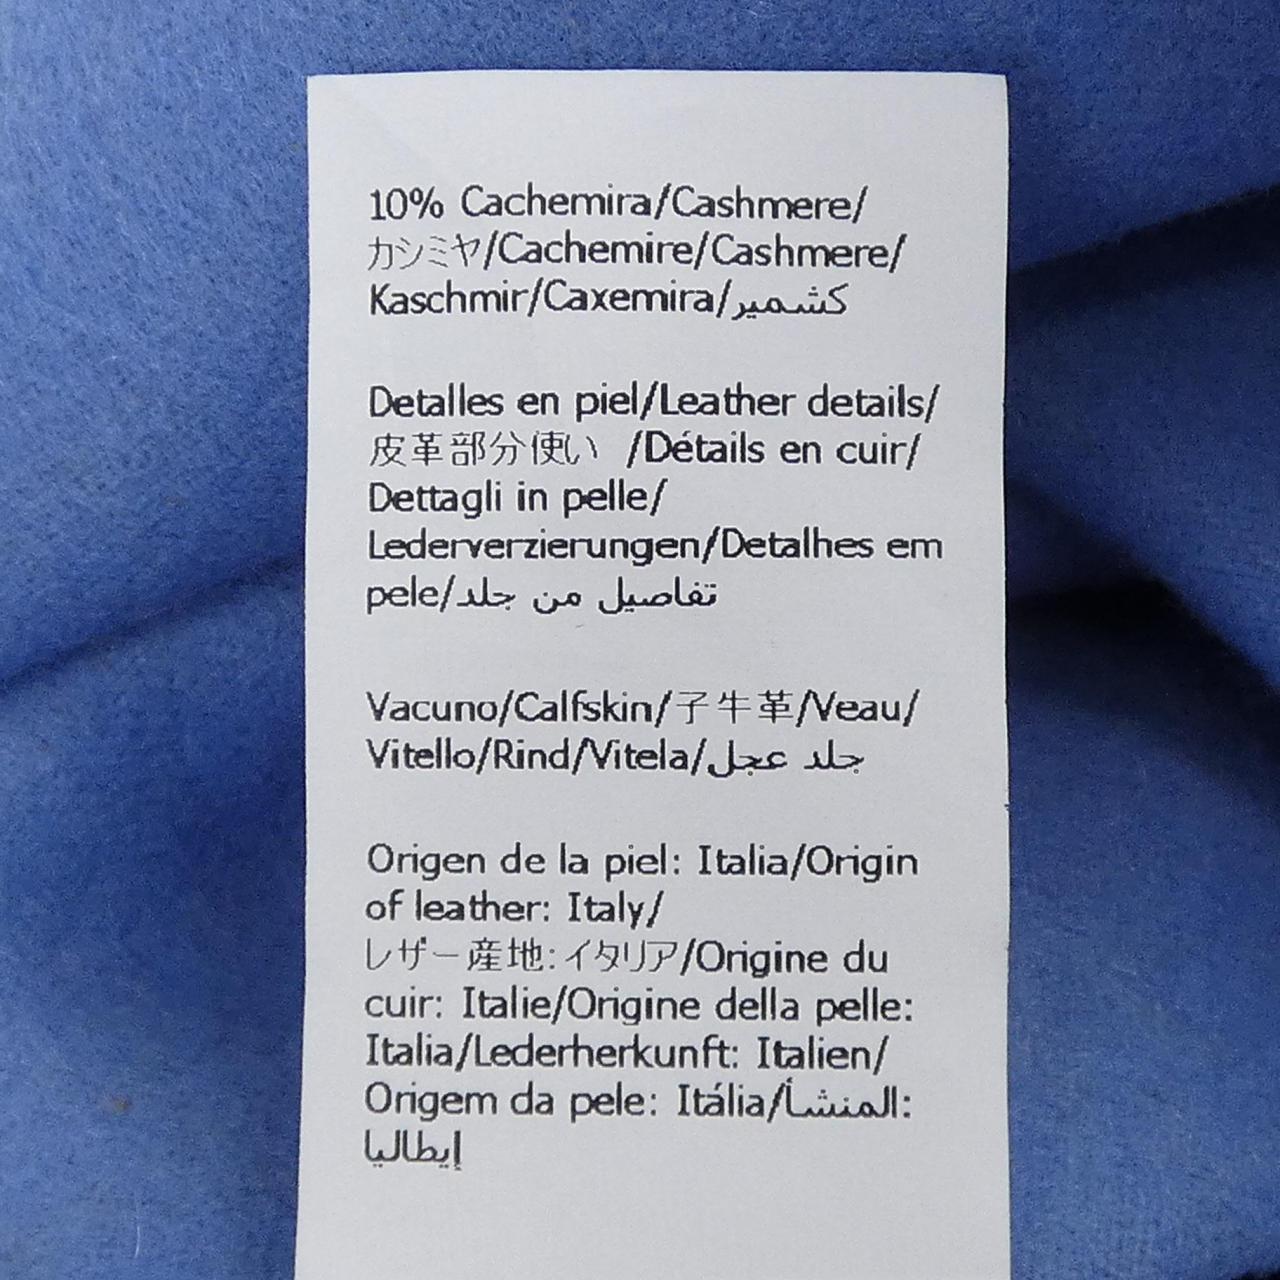 10% Cachemira/Cashmere/
カシミヤ/Cachemire/Cashmere/
Kaschmir/Caxemira/كشمير
Detalles en piel/Leather details/
皮革部分使い /Détails en cuir/
Dettagli in pelle/
Lederverzierungen/Detalhes em
pele/تفاصيل من جلد
Vacuno/Calfskin/子牛革/Veau/
Vitello/Rind/Vitela/جلد عجل
Origen de la piel: Italia/Origin
of leather: Italy/
レザー産地:イタリア/Origine du
cuir: Italie/Origine della pelle:
Italia/Lederherkunft: Italien/
Origem da pele: Itália/المنشأ:
إيطاليا